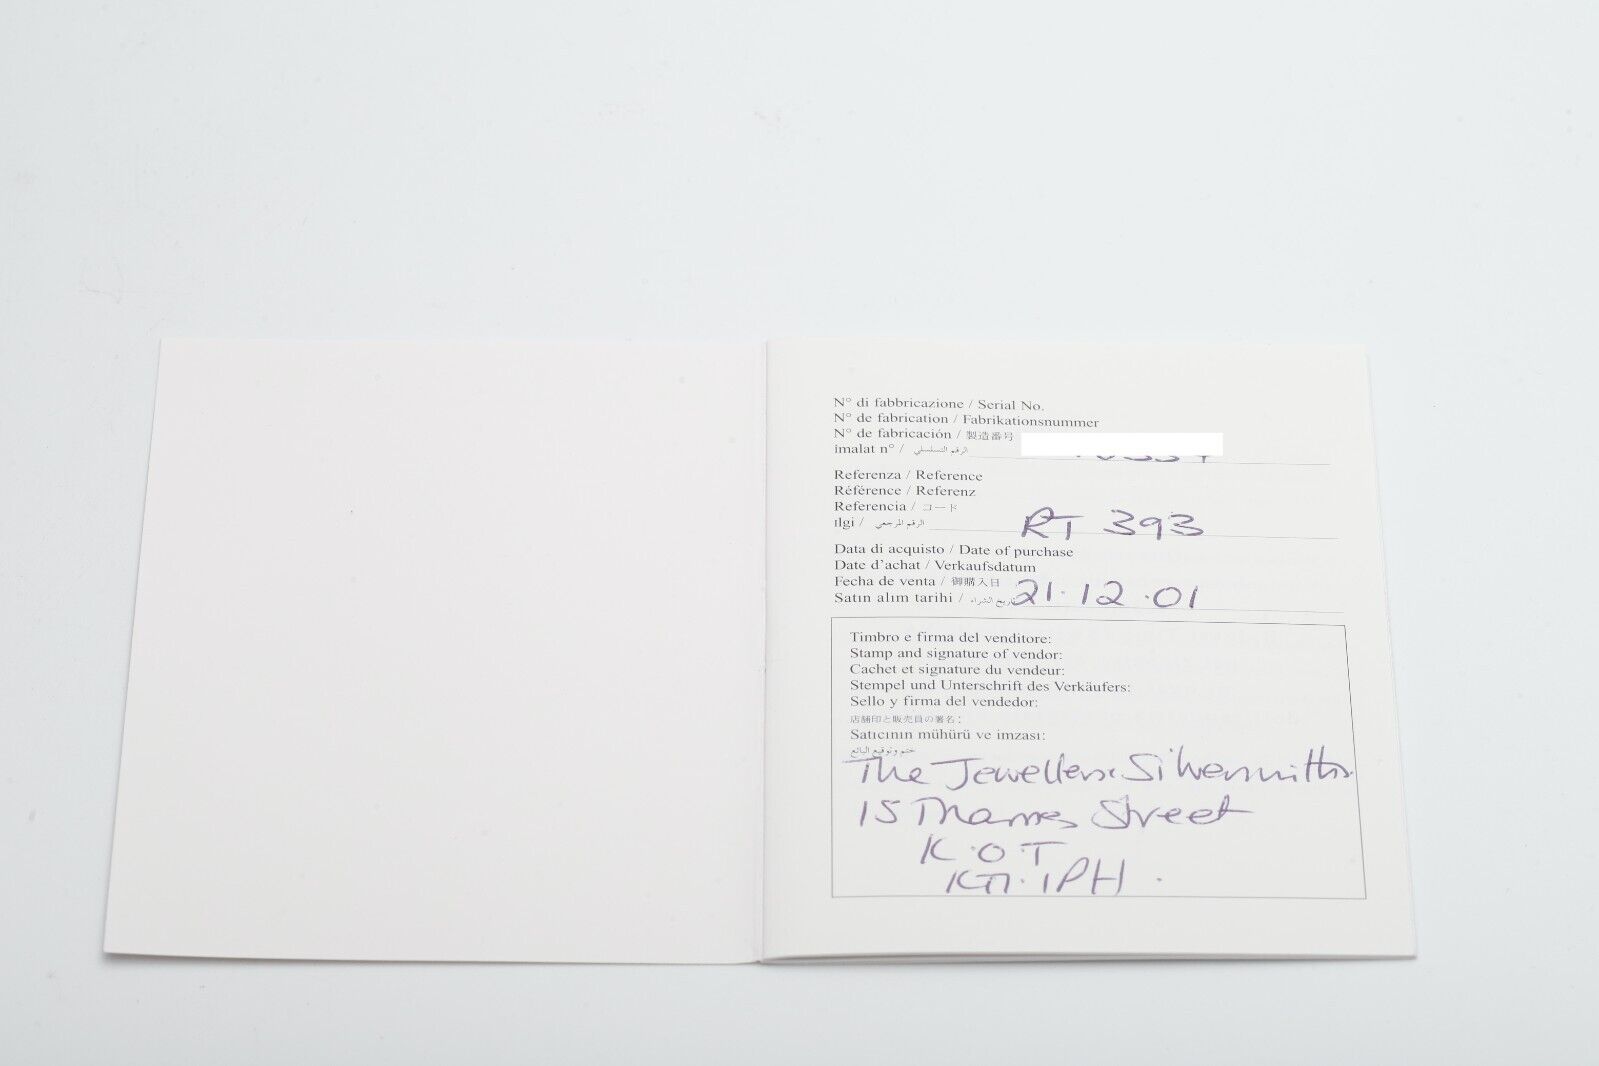 N° di fabbricazione / Serial No.
N° de fabrication / Fabrikationsnummer
N° de fabricación / 製造番号
imalat n° / الرقم التسلسلي
Referenza / Reference
Référence / Referenz
Referencia / コード
ılgi / الرقم المرجعي RT 393
Data di acquisto / Date of purchase
Date d'achat / Verkaufsdatum
Fecha de venta / 御購入日
Satın alım tarihi / تاريخ الشراء 21·12·01
Timbro e firma del venditore:
Stamp and signature of vendor:
Cachet et signature du vendeur:
Stempel und Unterschrift des Verkäufers:
Sello y firma del vendedor:
店舗印と販売員の署名:
Satıcının mühürü ve imzası:
ختم وتوقيع البائع
The Jewellers & Silversmiths
15 Thames Street
K·O·T
KT1·1PH·